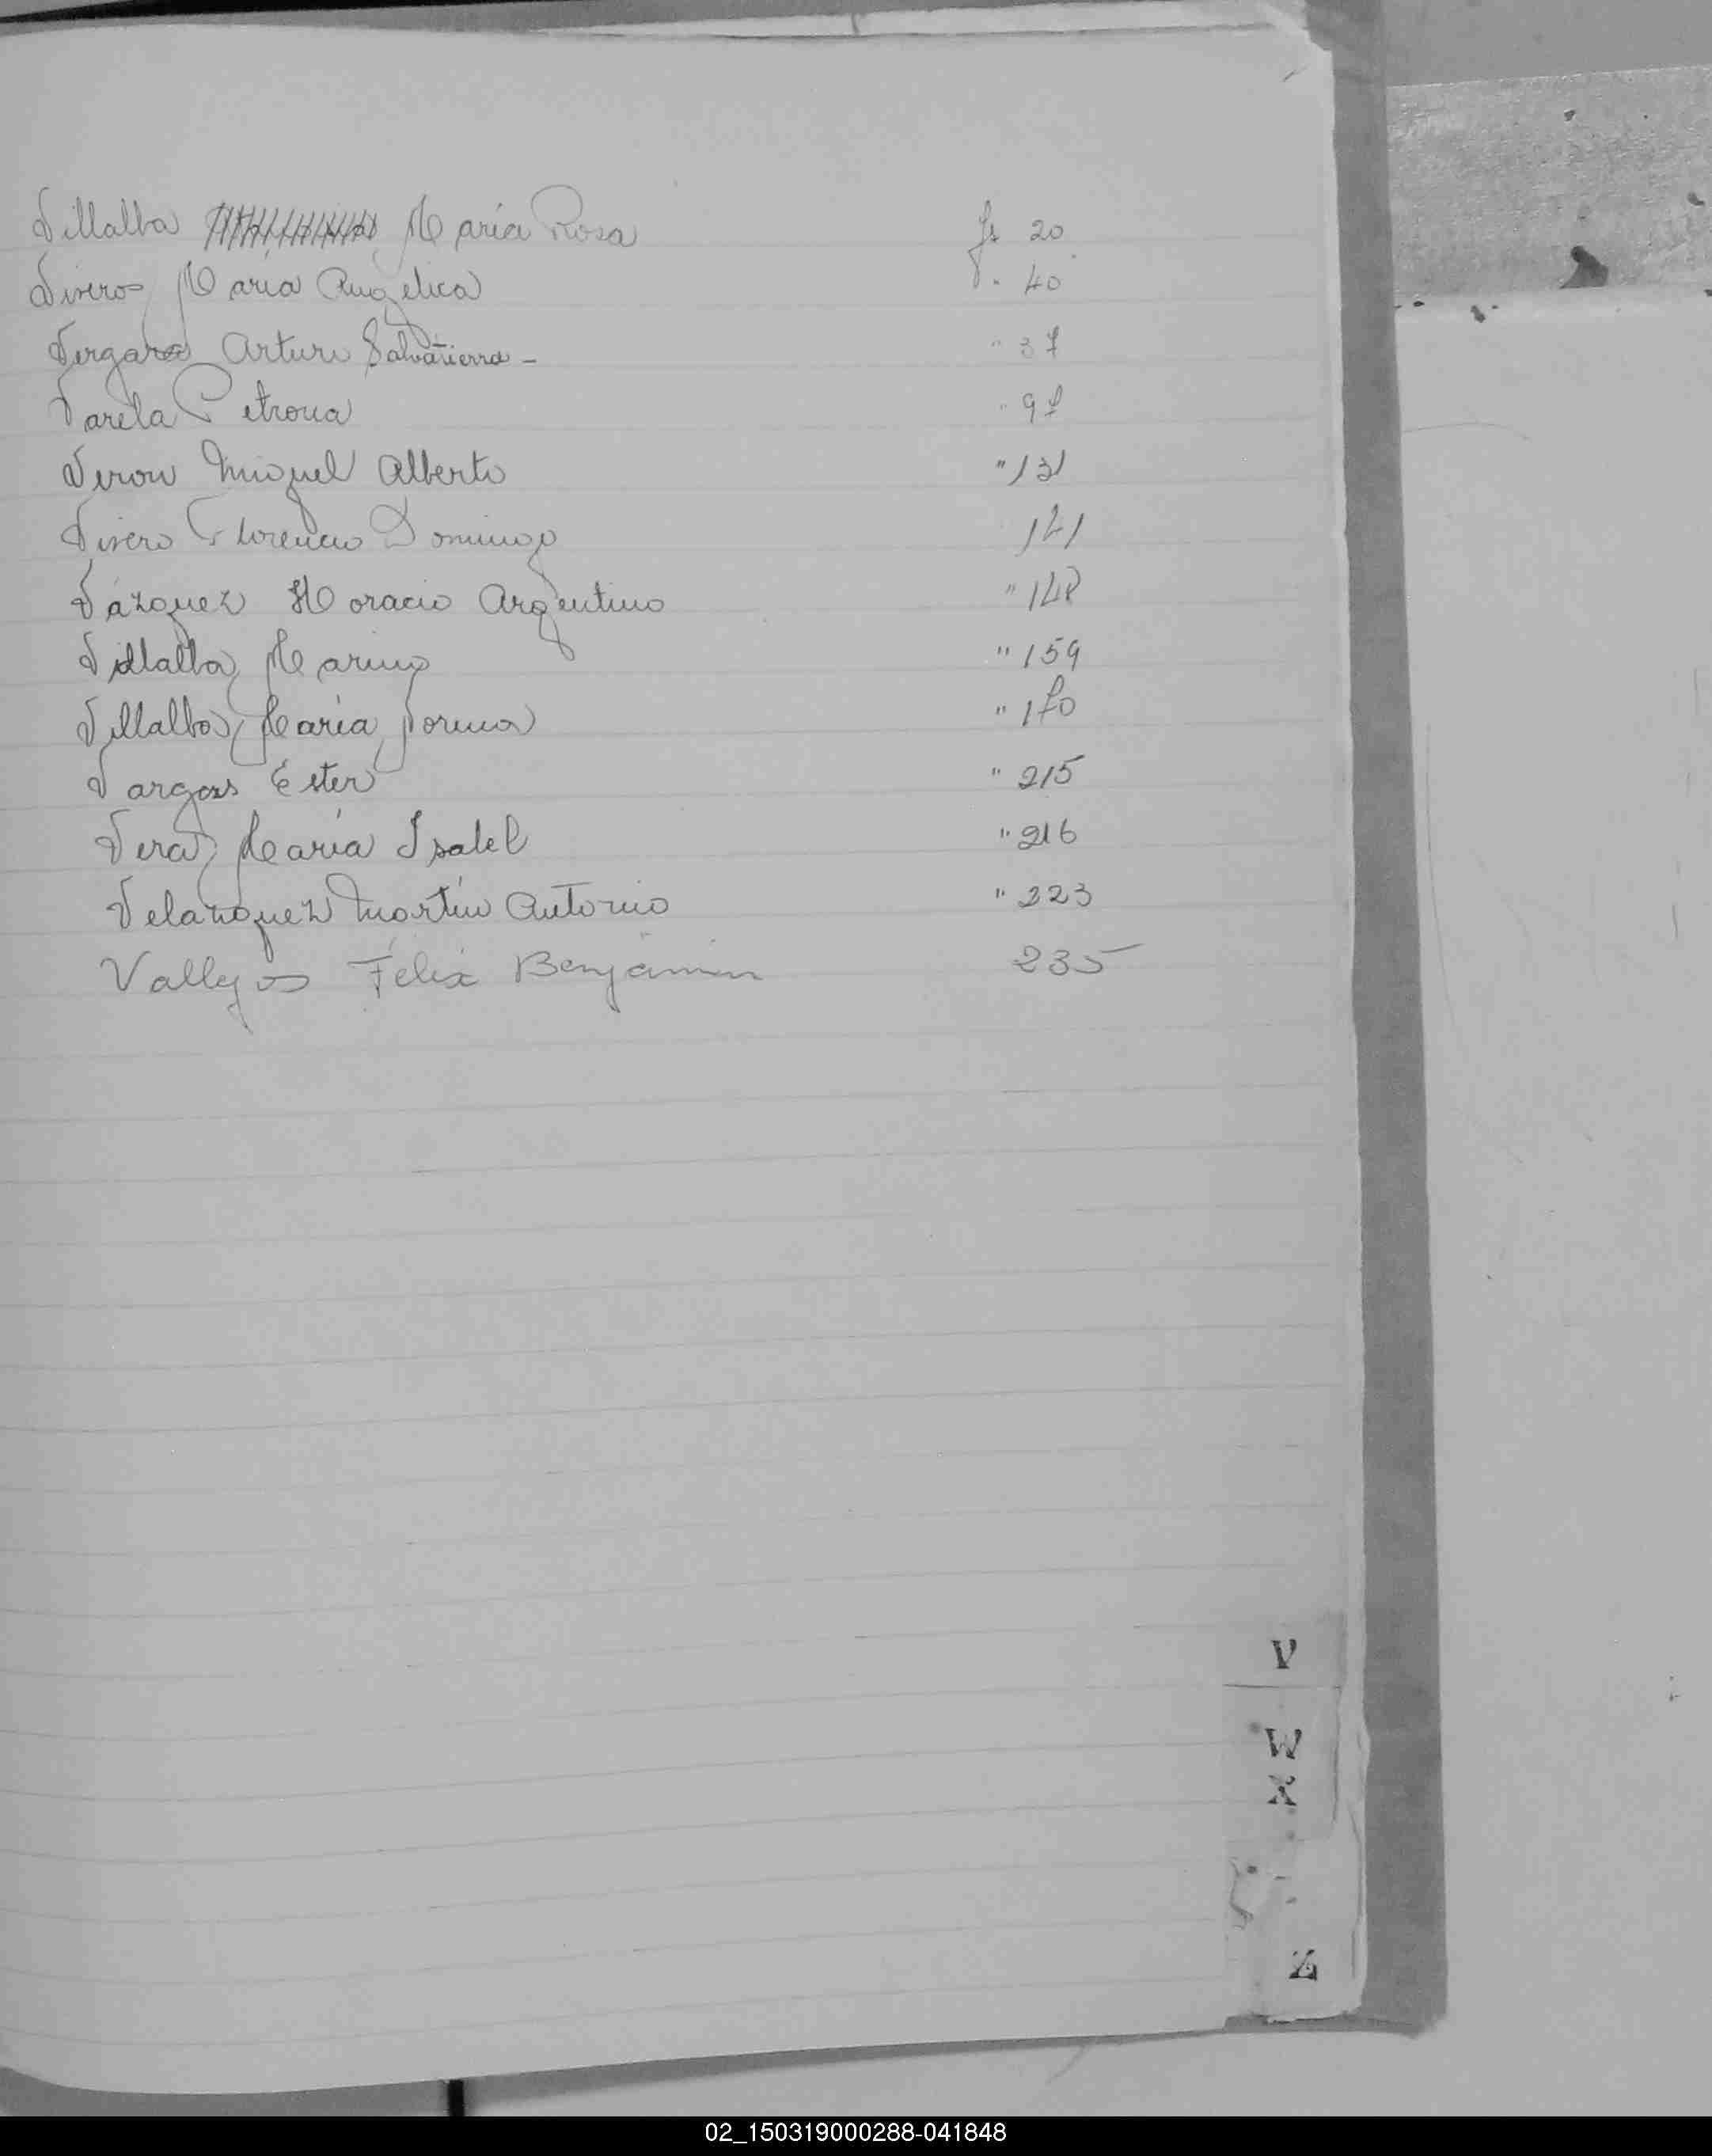 Villalba María Rosa fs 20
Viveros María Angélica " 40
Vergara Arturo Salvatierra - " 37
Varela Petrona " 97
Veron Miguel Alberto " 131
Vivero Florencio Domingo 141
Vázquez Horacio Argentino " 148
Villalba Marino " 159
Villalba María Norma " 170
Vargas Ester " 215
Vera María Isabel " 216
Velazquez Martín Antonio " 223
Vallejos Félix Benjamín 235
V
W
X
Z
02_150319000288-041848